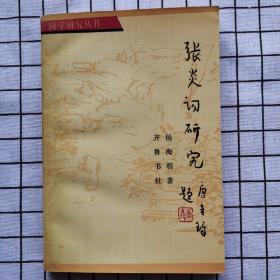 词学研究丛书
张炎词研究
唐圭璋
题
杨海明著
齐鲁书社